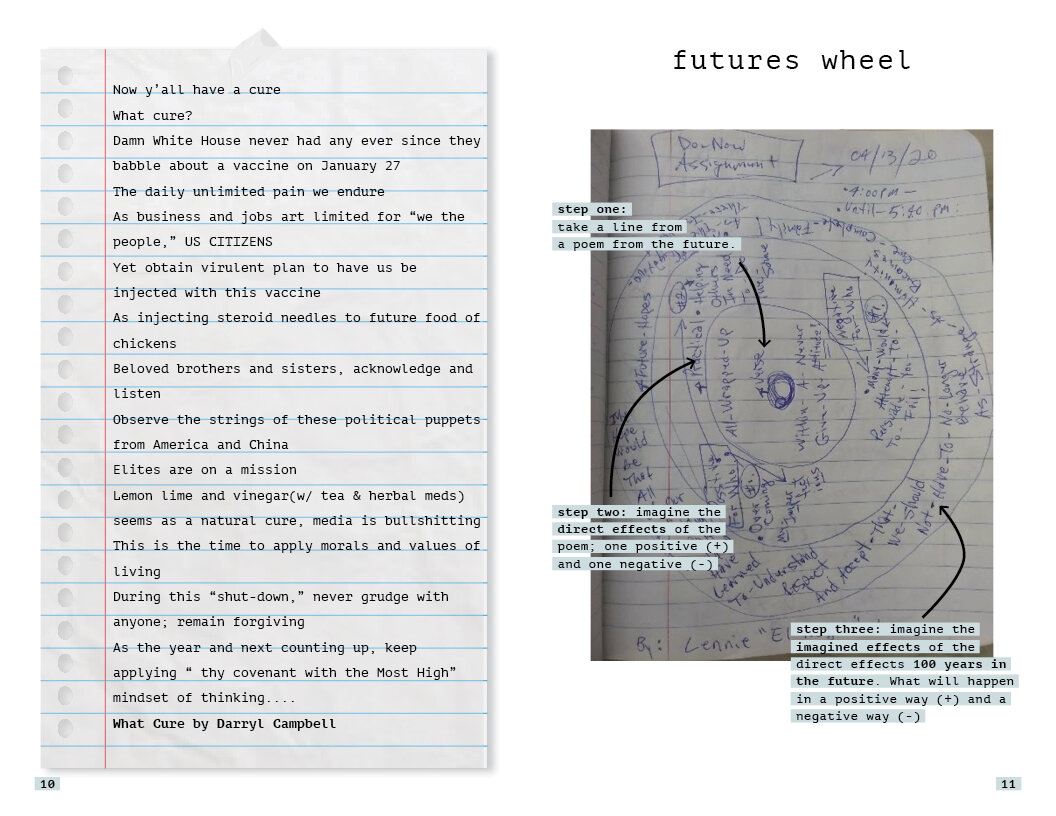 Now y’all have a cure
What cure?
Damn White House never had any ever since they
babble about a vaccine on January 27
The daily unlimited pain we endure
As business and jobs art limited for “we the
people,” US CITIZENS
Yet obtain virulent plan to have us be
injected with this vaccine
As injecting steroid needles to future food of
chickens
Beloved brothers and sisters, acknowledge and
listen
Observe the strings of these political puppets
from America and China
Elites are on a mission
Lemon lime and vinegar(w/ tea & herbal meds)
seems as a natural cure, media is bullshitting
This is the time to apply morals and values of
living
During this “shut-down,” never grudge with
anyone; remain forgiving
As the year and next counting up, keep
applying “ thy covenant with the Most High”
mindset of thinking....
What Cure by Darryl Campbell
10
futures wheel
Do-Now
Assignment
04/13/20
•4:00pm —
•Until-5:40 pm:
step one:
take a line from
a poem from the future.
Family
Complete
Humanity
Becomes
One
As
#2
Practical • Helping
Others
In Need
Future-Hopes
Negative
For Who
#1.
• Many-Would
Attempt-To-
Persuade-You-
To-Fail!
All-Wrapped-Up
Verse
Within-A-Never
Given-Up-Attitude!
No-Longer
Behave
As-Strange
would
Be
That
All
For Who
#1.
• Over
Coming
My
step two: imagine the
direct effects of the
poem; one positive (+)
and one negative (-)
Have
Learned
To-Understand
Respect
And Accept-That
We-Should
Not-Have-To-
By: Lennie
step three: imagine the
imagined effects of the
direct effects 100 years in
the future. What will happen
in a positive way (+) and a
negative way (-)
11